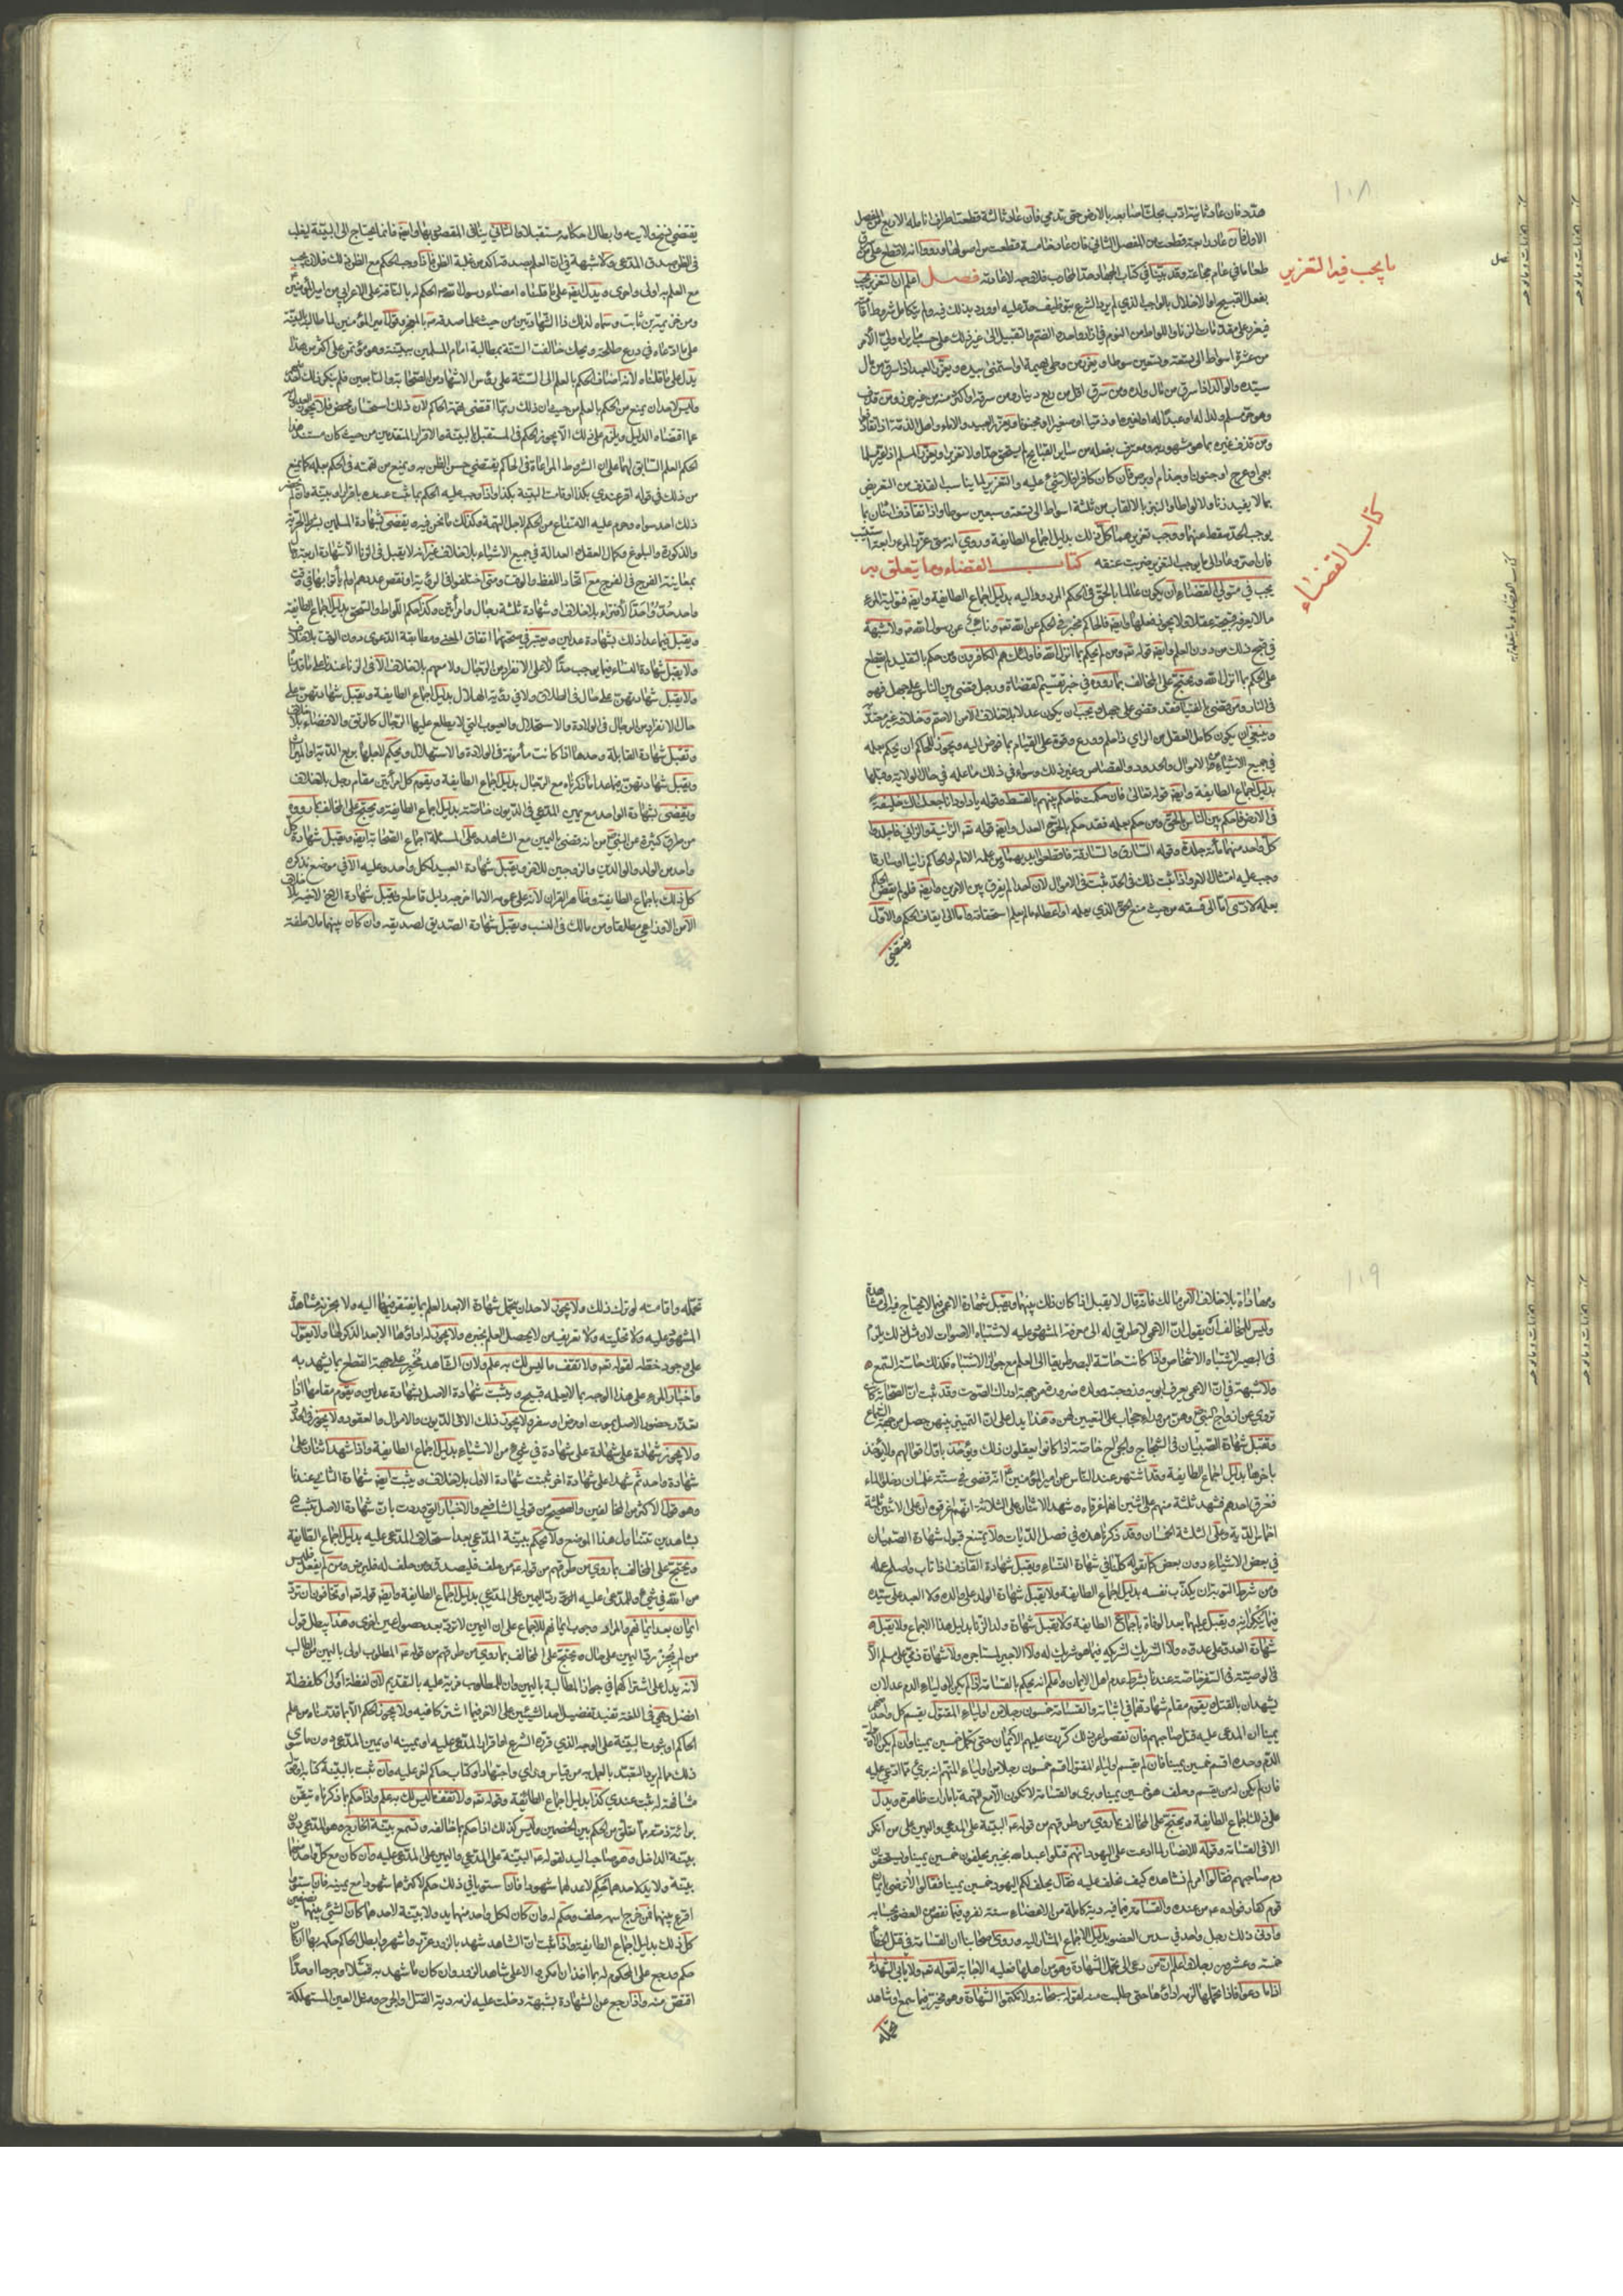 ١٠٨
ما يجب فيه التعزير
كتاب القضاء
هدد فان عاد ثانية ادّب بحكّ اصابعه بالارض حتى تدمي فان عاد ثالثة قطعت اطراف انامله الاربع من المفصل
الاول فان عاد رابعة قطعت من المفصل الثاني فان عاد خامسة قطعت من اصولها ورووا انه لا قطع على من سرق
طعاما في عام مجاعة وقد بيّنا في كتاب الجهاد حدّ المحارب فلا وجه لاعادته فصل اعلم ان التعزير يجب
بفعل القبيح او الاخلال بالواجب الذي لم يرد الشرع بتوظيف حدّ عليه او ورد بذلك فيه ولم يتكامل شروط اقامته
فيعزر على مقدمات الزنا واللواط من النوم في ازار واحد والضم والتقبيل الى غير ذلك على حسب ما يراه ولي الامر
من عشرة اسواط الى تسعة وتسعين سوطا ويعزر من وطئ بهيمة او استمنى بيده ويعزر العبد اذا سرق من مال
سيّده والوالد اذا سرق من مال ولده ومن سرق اقل من ربع دينار ومن سرقه او اكثر منه من غير حرز ومن قذف
وهو حرّ مسلم ولدا له او عبدا له او لغيره او ذميّا او صغيرا او مجنونا
ومن قذف غيره بما هو مشهور به ومعترف بفعله من ساير القبايح لم يستحق حدّا ولا تعزيرا ويعزر المسلم اذا عيّر مسلما
بعمى او عرج او جنون او جذام او برص فان كان كافرا فلا شيء عليه والتعزير لما يناسب القذف من التعريض
بما لا يفيد زنا ولا لواطا والنبز بالالقاب من ثلثة اسواط الى تسعة وسبعين سوطا واذا تقاذف اثنان بما
يوجب الحدّ سقط عنهما ووجب تعزيرهما كل ذلك بدليل اجماع الطايفة وروي انه متى عزّر المرء رابعة استتيب
فان اصرّ وعاد الى ما يوجب التعزير ضربت عنقه كتاب القضاء وما يتعلق به
يجب في متولي القضاء ان يكون عالما بالحق في الحكم المردود اليه بدليل اجماع الطايفة وايضا فتولية المرء
ما لا يعرفه قبيحة عقلا لا يجوز فعلها وايضا فالحاكم مخبر في الحكم عن الله تعالى ونائب عن رسول الله ص ولا شبهة
في قبح ذلك من دون العلم وايضا قوله تعالى ومن لم يحكم بما انزل الله فاولئك هم الكافرون ومن حكم بالتقليد لم يقطع
على الحكم بما انزل الله ويحتج على المخالف بما رووه في خبر تقسيم القضاة ورجل قضى بين الناس على جهل فهو
في النار ومن قضى بالفتيا فقد قضى على جهل ويجب ان يكون عدلا بلا خلاف الا من الاصمّ وخلافه غير معتدّ به
وينبغي ان يكون كامل العقل حسن الراي ذا علم وورع وقوة على القيام بما فوّض اليه ويجوز للحاكم ان يحكم بعلمه
في جميع الاشياء من الاموال والحدود والقصاص وغير ذلك وسواء في ذلك ما علمه في حال الولاية وقبلها
بدليل اجماع الطايفة وايضا قوله تعالى فان حكمت فاحكم بينهم بالقسط وقوله يا داود انا جعلناك خليفة
في الارض فاحكم بين الناس بالحق ومن حكم بعلمه فقد حكم بالحق والعدل وايضا قوله تعالى الزانية والزاني فاجلدوا
كلّ واحد منهما مائة جلدة وقوله السارق والسارقة فاقطعوا ايديهما فمن علمه الامام او الحاكم زانيا او سارقا
وجب عليه امتثال الامر واذا ثبت ذلك في الحدّ ثبت في الاموال لان احدا لم يفرق بين الامرين وايضا فلو لم يقض الحاكم
بعلمه لادّى اما الى فسقه من حيث منع الحق الذي يعلمه او اعطاء ما لم يعلم استحقاقه واما الى ايقاف الحكم والاول
يقتضي
يقتضي فسخ ولايته وابطال احكامه مستقبلا والثاني ينافي المقصود بها وايضا فانما يحتاج الى البيّنة ليغلب
في الظن صدق المدعي ولا شبهة في ان العلم بصدقه آكد من غلبة الظن فاذا وجب الحكم مع الظن لذلك فلان يجب
مع العلم به اولى واحرى ويدل ايضا على ما قلناه امضاء رسول الله ص الحكم له بالناقة على الاعرابي من امير المؤمنين
ومن خزيمة بن ثابت وسماه لذلك ذا الشهادتين من حيث علما صدقه ص بالمعجز وقول امير المؤمنين لما طالبه بالبيّنة
على ما ادّعاه في درع طلحة ويحك خالفت السنة بمطالبة امام المسلمين ببيّنة وهو مؤتمن على اكثر من هذا
يدل على ما قلناه لانه اضاف الحكم بالعلم الى السنة على رؤس الاشهاد من الصحابة والتابعين فلم ينكر ذلك احد
وليس لاحد ان يمنع من الحكم بالعلم من حيث ان ذلك ربما اقتضى تهمة الحاكم لان ذلك استحسان محض فلا يجوز العدول
عما اقتضاه الدليل ويلزم على ذلك الا يجوز الحكم في المستقبل بالبيّنة والاقرار المتقدمين من حيث كان مستند هذا
الحكم العلم السابق لهما على ان الشروط المراعاة في الحاكم يقتضي حسن الظن به ويمنع من تهمته في الحكم بعلمه كما يمنع
من ذلك في قوله اقرّ عندي بكذا او قامت البيّنة بكذا واذا وجب عليه الحكم بما ثبت عنده باقرار او بيّنة وان لم يحضر
ذلك احد سواه وحرم عليه الامتناع من الحكم لاجل التهمة وكذلك ما نحن فيه ويقضى بشهادة المسلمين بشرط الحرية
والذكورة والبلوغ وكمال العقل والعدالة في جميع الاشياء بلا خلاف غير انه لا يقبل في الزنا الا شهادة اربعة رجال
بمعاينة الفرج في الفرج مع اتحاد اللفظ والوقت ومتى اختلفوا في الرؤية او نقص عددهم او لم يأتوا بها في وقت
واحد حُدّوا حدّ الافتراء بلا خلاف او شهادة ثلثة رجال وامرأتين وكذا حكم اللواط والسحق بدليل اجماع الطايفة
ويقبل فيما عدا ذلك شهادة عدلين ويعتبر في صحتهما اتفاق المعنى ومطابقة الدعوى دون الوقت بلا خلاف
ولا يقبل شهادة النساء فيما يوجب حدّا لا على الانفراد من الرجال ولا معهم بلا خلاف الا في الزنا عندنا على ما قدّمنا
ولا يقبل شهادتهنّ على حال في الطلاق ولا في رؤية الهلال بدليل اجماع الطايفة ويقبل شهادتهنّ على
حال الانفراد من الرجال في الولادة والاستهلال والعيوب التي لا يطلع عليها الرجال كالرتق والافضاء بلا خلاف
وتقبل شهادة القابلة وحدها اذا كانت مأمونة في الولادة والاستهلال ويحكم لاجلها بربع الدية او الميراث
ويقبل شهادتهنّ فيما عدا ما ذكرناه مع الرجال بدليل اجماع الطايفة ويقوم كل امرأتين مقام رجل بلا خلاف
ويقضى بشهادة الواحد مع يمين المدعي في الديون خاصة بدليل اجماع الطايفة ويحتج على المخالف بما رووه
من طرق كثيرة عن النبي ص من انه قضى باليمين مع الشاهد وعلى المسئلة اجماع الصحابة ايضا ويقبل شهادة كل
واحد من الولد والوالدين والزوجين للاخر ويقبل شهادة العبيد لكل واحد وعليه الا في موضع نذكره
كل ذلك باجماع الطايفة وظاهر القران لانه على عمومه الا ما اخرجه دليل قاطع ويقبل شهادة الاخ لاخيه بلا خلاف
الا من الاوزاعي مطلقا ومن مالك في النسب ويقبل شهادة الصديق لصديقه وان كان بينهما ملاطفة
١٠٩
ومهاداة بلا خلاف الا من مالك فانه قال لا يقبل اذا كان ذلك بينهما ويقبل شهادة الاعمى فيما لا يحتاج فيه الى مشاهدة
وليس للمخالف ان يقول ان الاعمى لا طريق له الى معرفة المشهود عليه لاشتباه الاصوات لان مثل ذلك يلزم
في البصير لاشتباه الاشخاص واذا كانت حاسّة البصر طريقا الى العلم مع جواز الاشتباه وكذلك حاسة السمع
ولا شبهة في ان الاعمى يعرف ابويه وزوجته وولده ضرورة من جهة ادراك الصوت وقد ثبت ان الصحابة كانت
تروي عن ازواج النبي ص وهنّ من وراء حجاب على التعيين لهن وهذا يدل على ان التمييز بينهن حصل من جهة السماع
وتقبل شهادة الصبيان في الشجاج والجراح خاصّة اذا كانوا يعقلون ذلك ويؤخذ باول اقوالهم ولا يؤخذ
باخرها بدليل اجماع الطايفة وقد اشتهر عند الناس عن امير المؤمنين ع انه قضى في ستة غلمان دخلوا الماء
فغرق احدهم فشهد ثلثة منهم على اثنين انهما غرقاه وشهد الاثنان على الثلاثة انهم غرقوه ان على الاثنين ثلثة
اخماس الدية وعلى الثلثة الخمسان وقد ذكرنا هذه في فصل الديات ولا يمتنع قبول شهادة الصبيان
في بعض الاشياء دون بعض كما نقوله كلنا في شهادة النساء ويقبل شهادة القاذف اذا تاب واصلح عمله
ومن شرط التوبة ان يكذّب نفسه بدليل اجماع الطايفة ولا يقبل شهادة الولد على والده ولا العبد على سيّده
فيما ينكرانه ويقبل عليهما بعد الوفاة باجماع الطايفة ولا يقبل شهادة ولد الزنا بدليل هذا الاجماع ولا يقبل
شهادة العدو على عدوه ولا الشريك لشريكه فيما هو شريك له ولا الاجير لمستاجره ولا شهادة ذمي على مسلم الا
في الوصية في السفر خاصّة عندنا بشرط عدم اهل الايمان واعلم انه يحكم بالقسامة اذا لم يكن لاولياء الدم عدلان
يشهدان بالقتل ويقوم مقام شهادتهما في اثباته والقسامة خمسون رجلا من اولياء المقتول يقسم كل واحد منهم
يمينا ان المدعى عليه قتل صاحبهم فان نقصوا عن ذلك كررت عليهم الايمان حتى تكمل خمسين يمينا وان لم يكن الا ولي
الدم وحده اقسم خمسين يمينا فان لم يقسم اولياء المقتول اقسم خمسون رجلا من اولياء المتهم انه بريء مما ادعي عليه
فان لم يكن له من يقسم حلف هو خمسين يمينا وبرئ والقسامة لا تكون الا مع التهمة بامارات ظاهرة ويدل
على ذلك اجماع الطايفة ويحتج على المخالف بما روي من طرقهم من قوله ع البيّنة على المدعي واليمين على من انكر
الا في القسامة وقوله للانصار لما ادعت على اليهود انهم قتلوا عبد الله بخيبر يحلفون خمسين يمينا ويستحقون
دم صاحبهم فقالوا امر لم نشاهده كيف نحلف عليه فقال يحلف لكم اليهود خمسين يمينا فقالوا لا نرضى بايمان
قوم كفار فوداه ص من عنده والقسامة فيما فيه دية كاملة من الاعضاء ستة نفر وفيما نقص من العضو بحسابه
وادنى ذلك رجل واحد في سدس العضو بدليل الاجماع المشار اليه وروى اصحابنا ان القسامة في قتل الخطأ
خمسة وعشرون رجلا واعلم ان من دعي الى تحمل الشهادة وهو من اهلها فعليه الاجابة لقوله تعالى ولا يأبى الشهداء
اذا ما دعوا فاذا تحملها لزمه اداؤها متى طلبت منه لقوله سبحانه ولا تكتموا الشهادة وهو مخير فيما يسمع او يشاهد
تحمله
تحمله واقامته او ترك ذلك ولا يجوز لاحد ان يتحمل شهادة الا بعد العلم بما يفتقر فيها اليه ولا يجزيه مشاهدة
المشهود عليه ولا تحليته ولا تعريف من لا يحصل العلم بخبره ولا يجوز له اداؤها الا بعد الذكر لها ولا يعوّل
على وجود خطه لقوله تعالى ولا تقف ما ليس لك به علم ولان الشاهد مُخبر على جهة القطع بما يشهد به
واخبار المرء على هذا الوجه بما لا يعلمه قبيح ويثبت شهادة الاصل بشهادة عدلين ويقوم مقامها اذا
تعذّر حضور الاصل بموت او مرض او سفر ولا يجوز ذلك الا في الديون والاموال والعقود ولا يجوز في الحدود
ولا يجوز شهادة على شهادة على شهادة في شيء من الاشياء بدليل اجماع الطايفة واذا شهد اثنان على
شهادة واحد ثم شهدا على شهادة اخر ثبتت شهادة الاول بلا خلاف ويثبت ايضا شهادة الثاني عندنا
وهو قول الاكثر من المخالفين والصحيح من قولي الشافعي والاخبار التي وردت بان شهادة الاصل تثبت
بشاهدين تتناول هذا الموضع ولا يحكم ببيّنة المدعي بعد استحلاف المدعى عليه بدليل اجماع الطايفة
ويحتج على المخالف بما روي من طرقهم من قوله ع من حلف فليصدق ومن حلف له فليرض ومن لم يفعل فليس
من الله في شيء وللمدعى عليه ردّ اليمين على المدعي بدليل اجماع الطايفة وايضا قوله تعالى او يخافوا ان تردّ
ايمان بعد ايمانهم والمراد وجوب ايمانهم للاجماع على ان اليمين لا تردّ بعد حصول يمين اخرى وهذا يبطل قول
من لم يُجز ردّ اليمين على حال ويحتج على المخالف بما روي من طرقهم من قوله ع المطلوب اولى باليمين من الطالب
لانه يدل على اشتراكهما في جواز المطالبة باليمين وان للمطلوب مزية عليه بالتقديم لان لفظة اولى كلفظة
افضل وهي في اللغة تفيد تفضيل احد الشيئين على الاخر فيما اشتركا فيه ولا يجوز الحكم الا بما قدّمناه من علم
الحاكم او ثبوت البيّنة على الوجه الذي قرره الشرع او اقرار المدعى عليه او يمينه او يمين المدعي دون ما سوى
ذلك مما لم يرد التعبّد بالعمل به من قياس او رأي واجتهاد او كتاب حاكم اخر اليه وان ثبت بالبيّنة كتابه او قوله
مشافهة له ثبت عندي كذا بدليل اجماع الطائفة وقوله تعالى ولا تقف ما ليس لك به علم واذا حكم بما ذكرناه تيقن
براءة ذمته مما تعلق من الحكم بين الخصمين وليس كذلك اذا حكم بما خالفه وتسمع بيّنة الخارج وهو المدعي دون
بيّنة الداخل وهو صاحب اليد لقوله ع البيّنة على المدعي واليمين على المدعى عليه وان كان مع كل واحد منهما
بيّنة ولا يد لاحدهما حُكم لاعدلهما شهودا فان استويا في ذلك حكم لاكثرهما شهودا مع يمينه فان استووا
اقرع بينهما فمن خرج اسمه حلف وحكم له وان كان لكل واحد منهما يد ولا بيّنة لاحدهما كان الشيء بينهما نصفين
كل ذلك بدليل اجماع الطايفة واذا ثبت ان الشاهد شهد بالزور عزّر واشهر وابطل الحاكم حكمه بها ان كان
حكم ورجع على المحكوم له بما اخذ ان امكن والا على شاهد الزور وان كان ما شهد به قتلا او جرحا او حدّا
اقتص منه واذا رجع عن الشهادة بشبهة دخلت عليه لزمه دية القتل والجرح ومثل العين المستهلكة